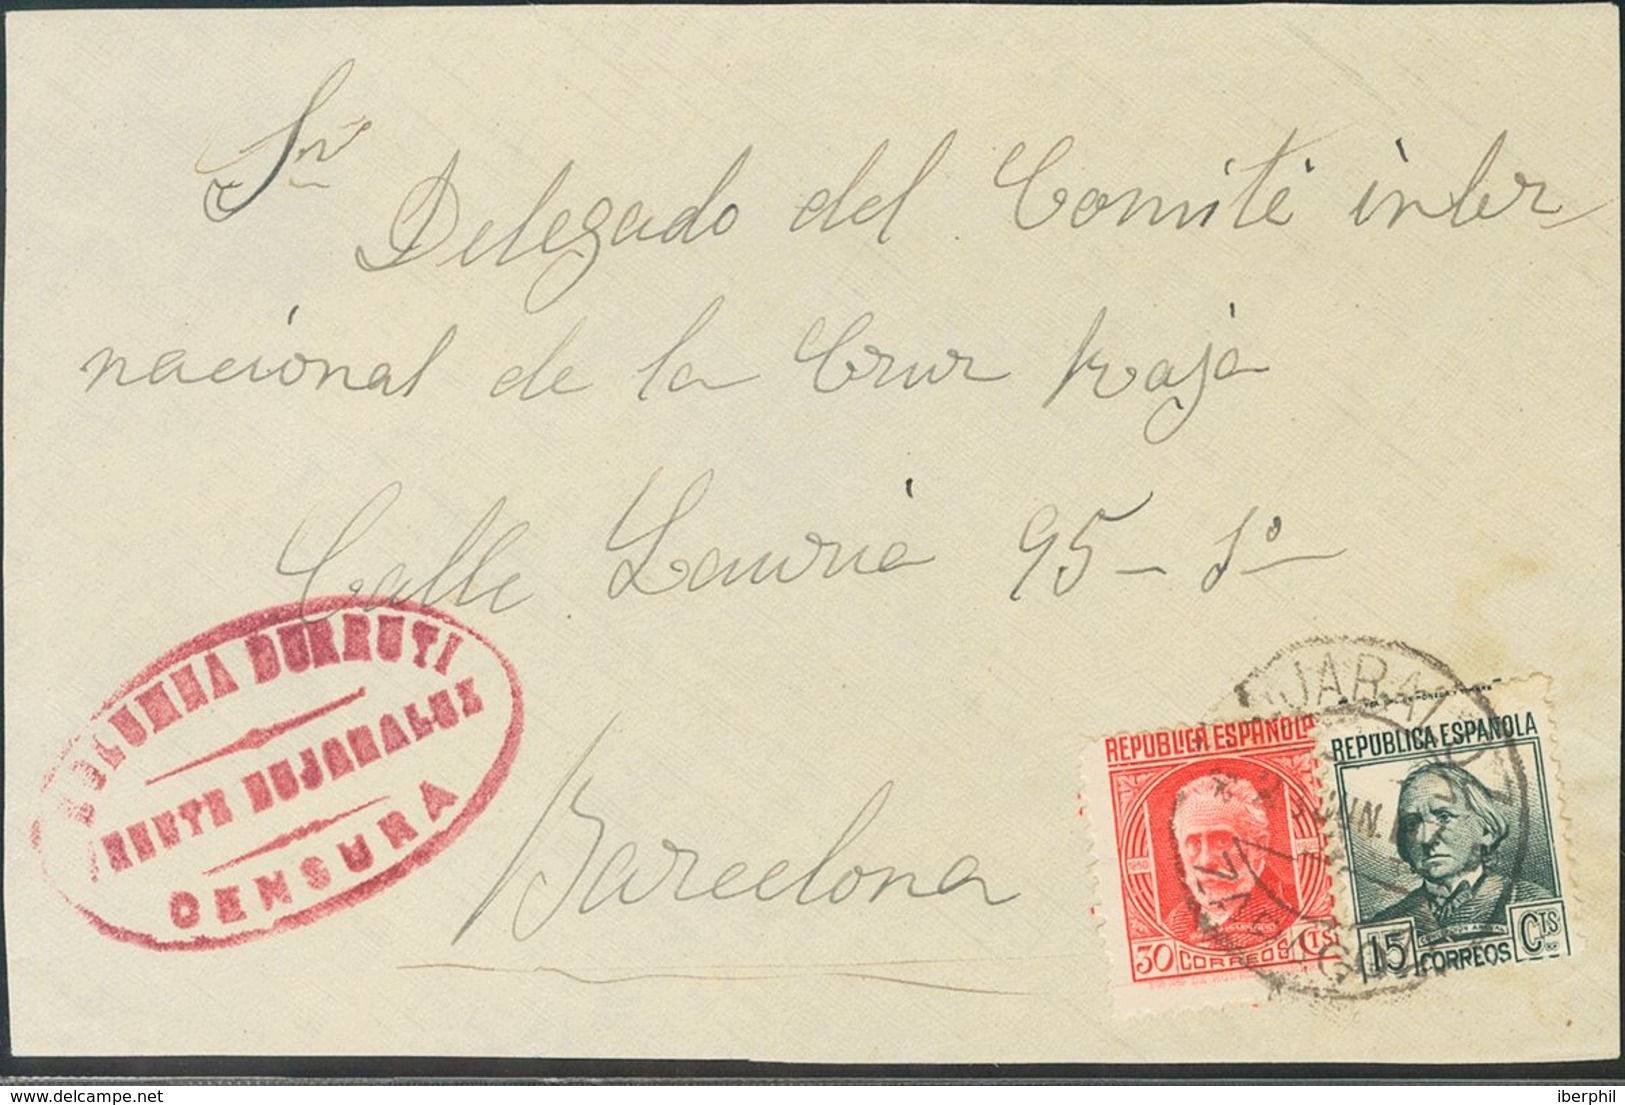 Sr
Delegado del Comité inter
nacional de la Cruz Roja
Calle Lauria 95 - 1º
Barcelona
COLUMNA DURRUTI
FRENTE BUJARALOZ
CENSURA
REPUBLICA ESPAÑOLA
30 CTS
CORREOS
REPUBLICA ESPAÑOLA
15 CTS
CORREOS
CONCEPCION ARENAL
BUJARALOZ
JUN.
ZARAGOZA
delcampe.net
iberphil